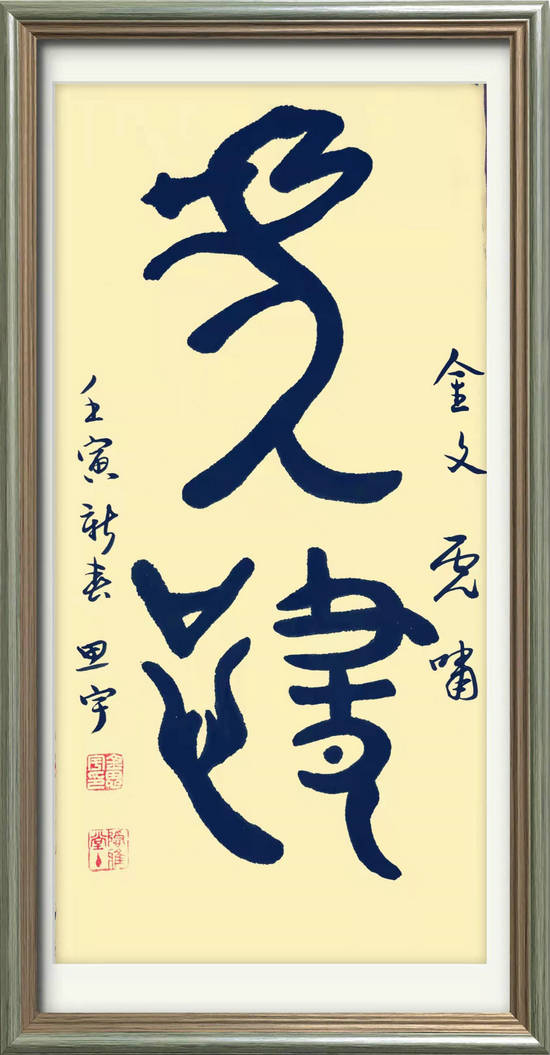 虎啸
金文 虎啸
壬寅新春 思宇